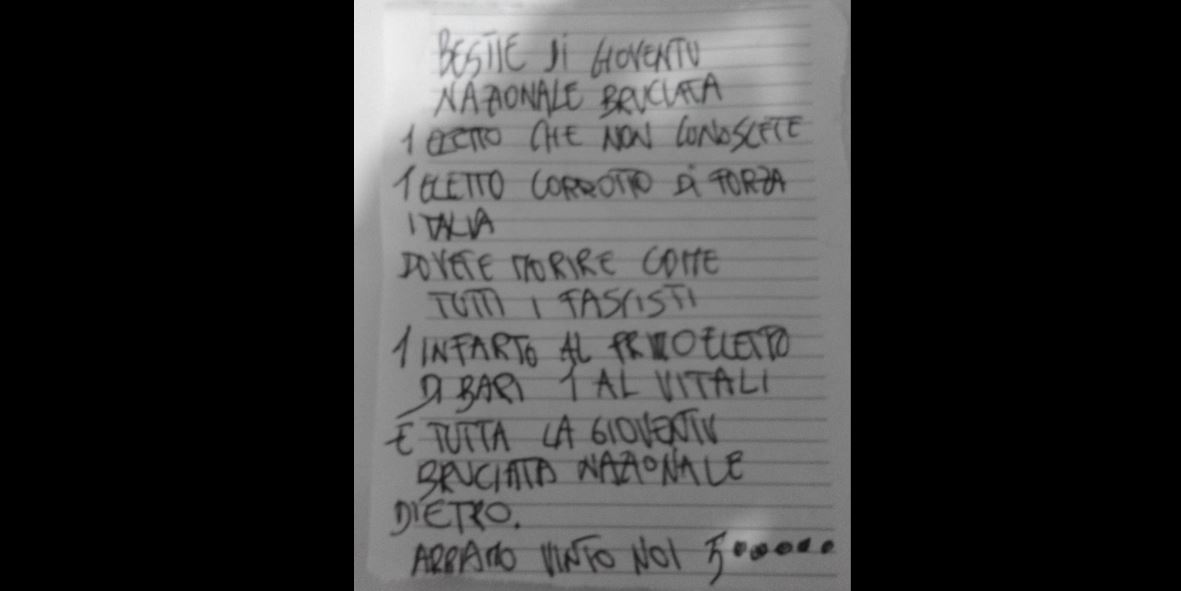 BESTIE Di GIOVENTU
NAZIONALE BRUCIATA
1 ELETTO CHE NON CONOSCETE
1 ELETTO CORROTTO Di FORZA
ITALIA
DOVETE MORIRE COME
TUTTI I FASCISTI
1 INFARTO AL PRIMO ELETTO
DI BARI 1 AL VITALI
E TUTTA LA GIOVENTU
BRUCIATA NAZIONALE
DIETRO.
ABBIAMO VINTO NOI 5•••••